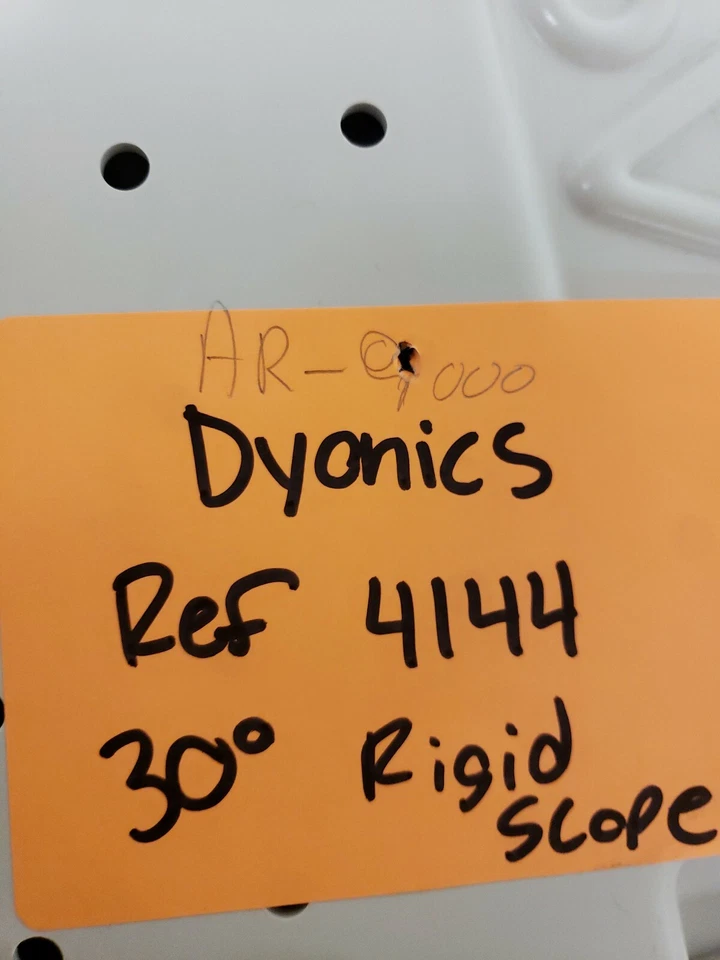 AR-9000
Dyonics
Ref 4144
30° Rigid
scope